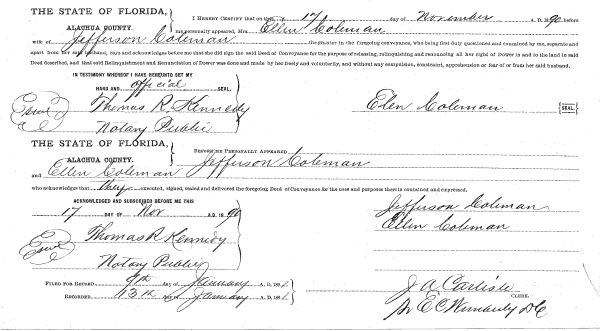 THE STATE OF FLORIDA,
ALACHUA COUNTY.
I HEREBY CERTIFY that on this 17 day of November A. D. 1890, before
me personally appeared, Mrs. Ellen Coleman
wife of Jefferson Coleman the grantor in the foregoing conveyance, who being first duly questioned and examined by me, separate and
apart from her said husband, says and acknowledges before me that she did sign the said Deed of Conveyance for the purpose of releasing, relinquishing and renouncing all her right of Dower in and to the land in said
Deed described, and that said Relinquishment and Renunciation of Dower was done and made by her freely and voluntarily, and without any compulsion, constraint, apprehension or fear of or from her said husband.
IN TESTIMONY WHEREOF I HAVE HEREUNTO SET MY
HAND AND official SEAL.
Thomas R. Kennedy
Notary Public
Ellen Coleman SEAL
THE STATE OF FLORIDA,
ALACHUA COUNTY.
BEFORE ME PERSONALLY APPEARED
Jefferson Coleman
and Ellen Coleman
who acknowledge that they executed, signed, sealed and delivered the foregoing Deed of Conveyance for the uses and purposes therein contained and expressed.
ACKNOWLEDGED AND SUBSCRIBED BEFORE ME THIS
17 DAY OF Nov A.D. 1890
Jefferson Coleman
Ellen Coleman
Thomas R Kennedy
Notary Public
FILED FOR RECORD 9th day of January A.D. 1891.
RECORDED 13th day of January A.D. 1891.
J A Carlisle
CLERK.
By E C Wimberly DC